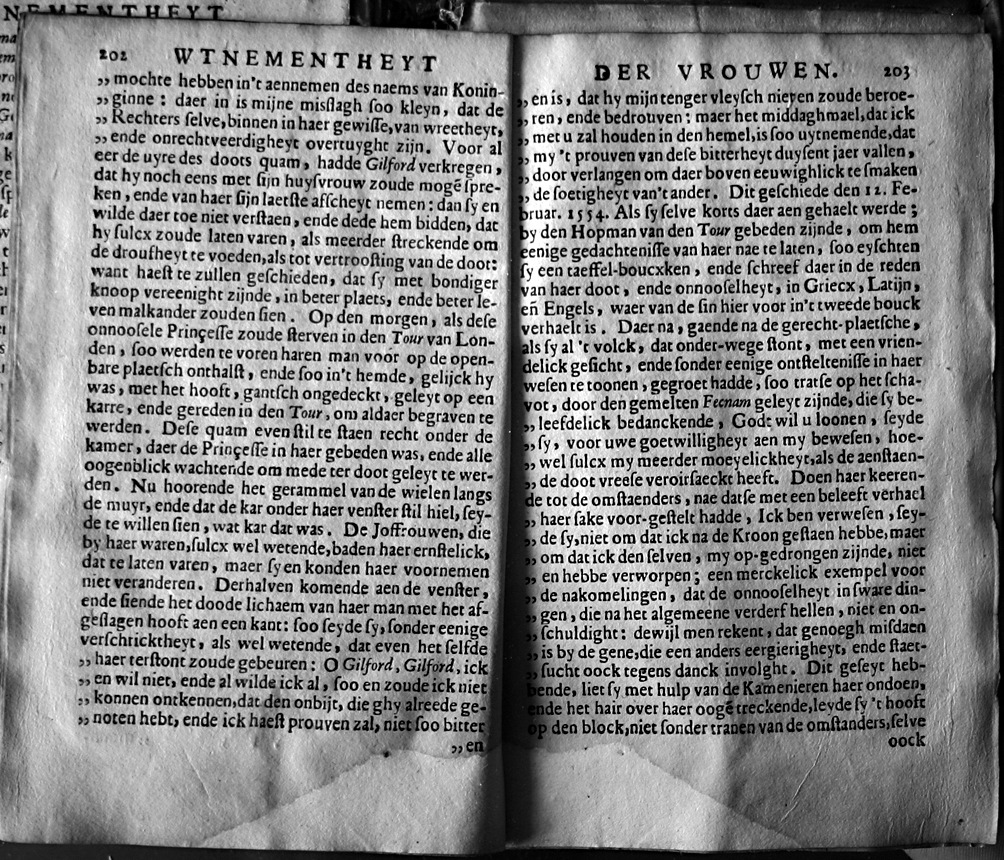 NEMENTHEYT
202 WTNEMENTHEYT
„ mochte hebben in't aennemen des naems van Konin-
„ ginne : daer in is mijne misſlagh ſoo kleyn, dat de
„ Rechters ſelve, binnen in haer gewiſſe, van wreetheyt,
„ ende onrechtveerdigheyt overtuyght zijn. Voor al
eer de uyre des doots quam, hadde Gilford verkregen,
dat hy noch eens met ſijn huyſvrouw zoude mogē ſpre-
ken, ende van haer ſijn laetſte afſcheyt nemen : dan ſy en
wilde daer toe niet verſtaen, ende dede hem bidden, dat
hy ſulcx zoude laten varen, als meerder ſtreckende om
de droufheyt te voeden, als tot vertrooſting van de doot:
want haeſt te zullen geſchieden, dat ſy met bondiger
knoop vereenight zijnde, in beter plaets, ende beter le-
ven malkander zouden ſien. Op den morgen, als deſe
onnooſele Prinçeſſe zoude ſterven in den Tour van Lon-
den, ſoo werden te voren haren man voor op de open-
bare plaetſch onthalſt, ende ſoo in't hemde, gelijck hy
was, met het hooft, gantſch ongedeckt, geleyt op een
karre, ende gereden in den Tour, om aldaer begraven te
werden. Deſe quam even ſtil te ſtaen recht onder de
kamer, daer de Prinçeſſe in haer gebeden was, ende alle
oogenblick wachtende om mede ter doot geleyt te wer-
den. Nu hoorende het gerammel van de wielen langs
de muyr, ende dat de kar onder haer venſter ſtil hiel, ſey-
de te willen ſien, wat kar dat was. De Joffrouwen, die
by haer waren, ſulcx wel wetende, baden haer ernſtelick,
dat te laten varen, maer ſy en konden haer voornemen
niet veranderen. Derhalven komende aen de venſter,
ende ſiende het doode lichaem van haer man met het af-
geſlagen hooft aen een kant: ſoo ſeyde ſy, ſonder eenige
verſchricktheyt, als wel wetende, dat even het ſelfde
„ haer terſtont zoude gebeuren : O Gilford, Gilford, ick
„ en wil niet, ende al wilde ick al, ſoo en zoude ick niet
„ konnen ontkennen, dat den onbijt, die ghy alreede ge-
„ noten hebt, ende ick haeſt prouven zal, niet ſoo bitter
„ en
DER VROUWEN. 203
„ en is, dat hy mijn tenger vleyſch nieten zoude beroe-
„ ren, ende bedrouven : maer het middaghmael, dat ick
„ met u zal houden in den hemel, is ſoo uytnemende, dat
„ my 't prouven van deſe bitterheyt duyſent jaer vallen,
„ door verlangen om daer boven eeuwighlick te ſmaken
„ de ſoetigheyt van't ander. Dit geſchiede den 12. Fe-
bruar. 1554. Als ſy ſelve korts daer aen gehaelt werde ;
by den Hopman van den Tour gebeden zijnde, om hem
eenige gedachteniſſe van haer nae te laten, ſoo eyſchten
ſy een taeffel-boucxken, ende ſchreef daer in de reden
van haer doot, ende onnooſelheyt, in Griecx, Latijn,
en̄ Engels, waer van de ſin hier voor in't tweede bouck
verhaelt is. Daer na, gaende na de gerecht-plaetſche,
als ſy al 't volck, dat onder-wege ſtont, met een vrien-
delick geſicht, ende ſonder eenige ontſtelteniſſe in haer
weſen te toonen, gegroet hadde, ſoo tratſe op het ſcha-
vot, door den gemelten Fecnam geleyt zijnde, die ſy be-
„ leefdelick bedanckende, God: wil u loonen, ſeyde
„ ſy, voor uwe goetwilligheyt aen my beweſen, hoe-
„ wel ſulcx my meerder moeyelickheyt, als de aenſtaen-
„ de doot vreeſe veroirſaeckt heeft. Doen haer keeren-
de tot de omſtaenders, nae datſe met een beleeft verhael
„ haer ſake voor-geſtelt hadde, Ick ben verweſen, ſey-
„ de ſy, niet om dat ick na de Kroon geſtaen hebbe, maer
„ om dat ick den ſelven, my op-gedrongen zijnde, niet
„ en hebbe verworpen ; een merckelick exempel voor
„ de nakomelingen, dat de onnooſelheyt in ſware din-
„ gen, die na het algemeene verderf hellen, niet en on-
„ ſchuldight : dewijl men rekent, dat genoegh miſdaen
„ is by de gene, die een anders eergierigheyt, ende ſtaet-
„ ſucht oock tegens danck involght. Dit geſeyt heb-
bende, liet ſy met hulp van de Kamenieren haer ondoen,
ende het hair over haer oogē treckende, leyde ſy 't hooft
op den block, niet ſonder tranen van de omſtanders, ſelve
oock